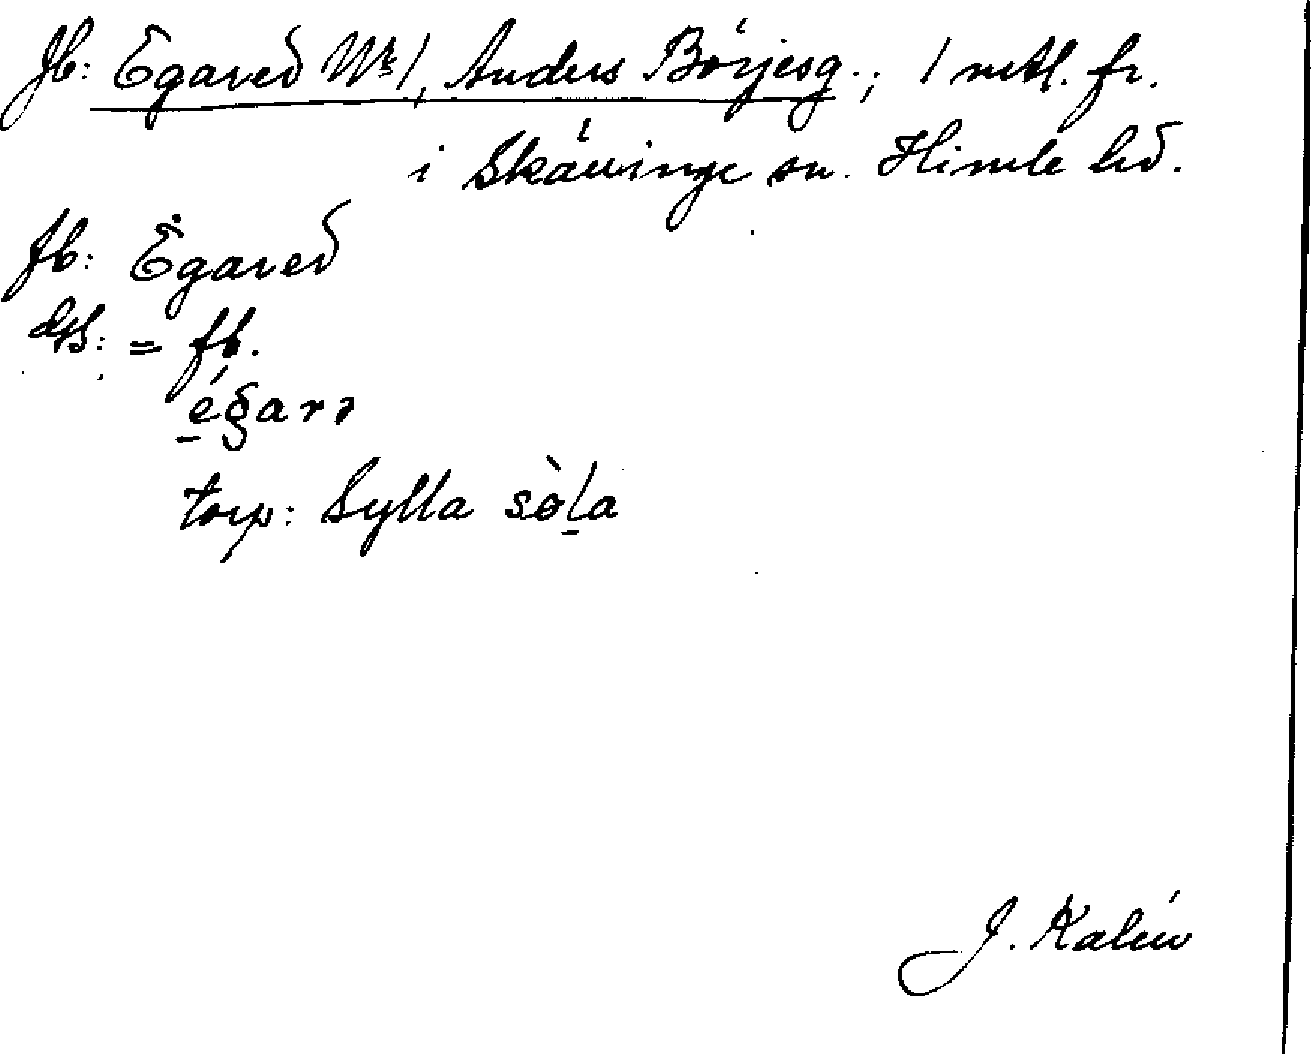 Jb: Egared Nr 1, Anders Börjesg.; 1 mtl. fr.
i Skällinge sn. Himle hd.
fb: Egared
= fb.
égarə
torp: Sylla sòla
J. Kalén